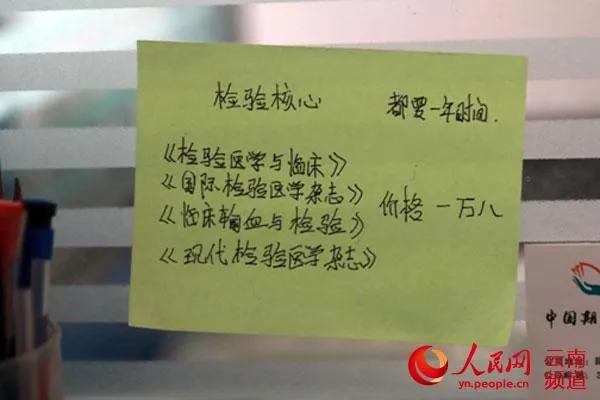 检验核心 都要一年时间.
《检验医学与临床》
《国际检验医学杂志》
《临床输血与检验》
价格 一万八
《现代检验医学杂志》
中国期
人民网 云南
yn.people.cn 频道